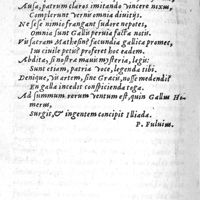 Ausa, patrum claros imitando vincere nixu,
Complerunt verni omnia diuitijs.
Ne sese nimio frangant sudore nepotes,
Omnia sunt Galli peruia facta notis.
Vt sacram Mathesin facundia gallica promet,
Ius ciuile petust proferet hoc eadem.
Abdita, si nostra mauis mysteria, legis:
Sunt etiam, patria voce, legenda tibi.
Denique, vt artem, sine Graiis, nosse medendi
En galla incedit conspicienda toga.
Ad summum rerum ventum est, quin Gallus Homerus,
Surgit, & ingentem concipit Iliada.
P. Fuluius.